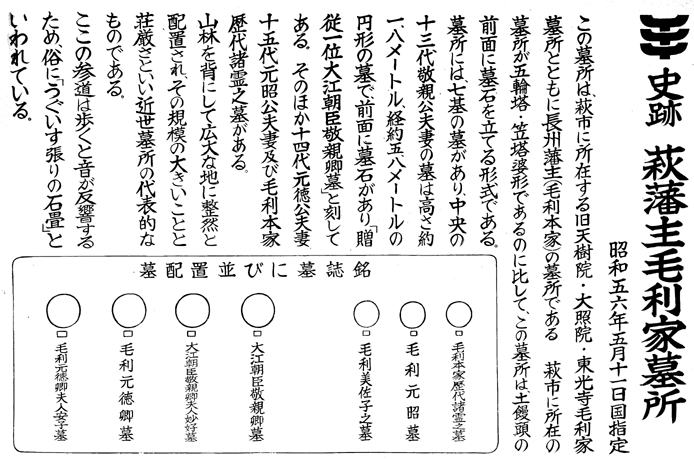 史跡 萩藩主毛利家墓所
昭和五六年五月十一日国指定
この墓所は、萩市に所在する旧天樹院・大照院・東光寺毛利家
墓所とともに長州藩主(毛利本家)の墓所である 萩市に所在の
墓所が五輪塔・笠塔婆形であるのに比して、この墓所は土饅頭の
前面に墓石を立てる形式である。
墓所には、七基の墓があり、中央の
十三代敬親公夫妻の墓は高さ約
一、八メートル、経約五、八メートルの
円形の墓で、前面に墓石があり、「贈
従一位大江朝臣敬親卿墓」と刻して
ある。そのほか十四代元徳公夫妻
十五代元昭公夫妻及び毛利本家
歴代諸霊之墓がある。
山林を背にして広大な地に整然と
配置され、その規模の大きいことと
荘厳さとい近世墓所の代表的な
ものである。
ここの参道は歩くと音が反響する
ため、俗に「うぐいす張りの石畳」と
いわれている。
墓配置並びに墓誌銘
毛利本家歴代諸霊之墓
毛利元昭墓
毛利美佐子之墓
大江朝臣敬親卿墓
大江朝臣敬親卿夫人妙好墓
毛利元徳卿墓
毛利元徳卿夫人安子墓